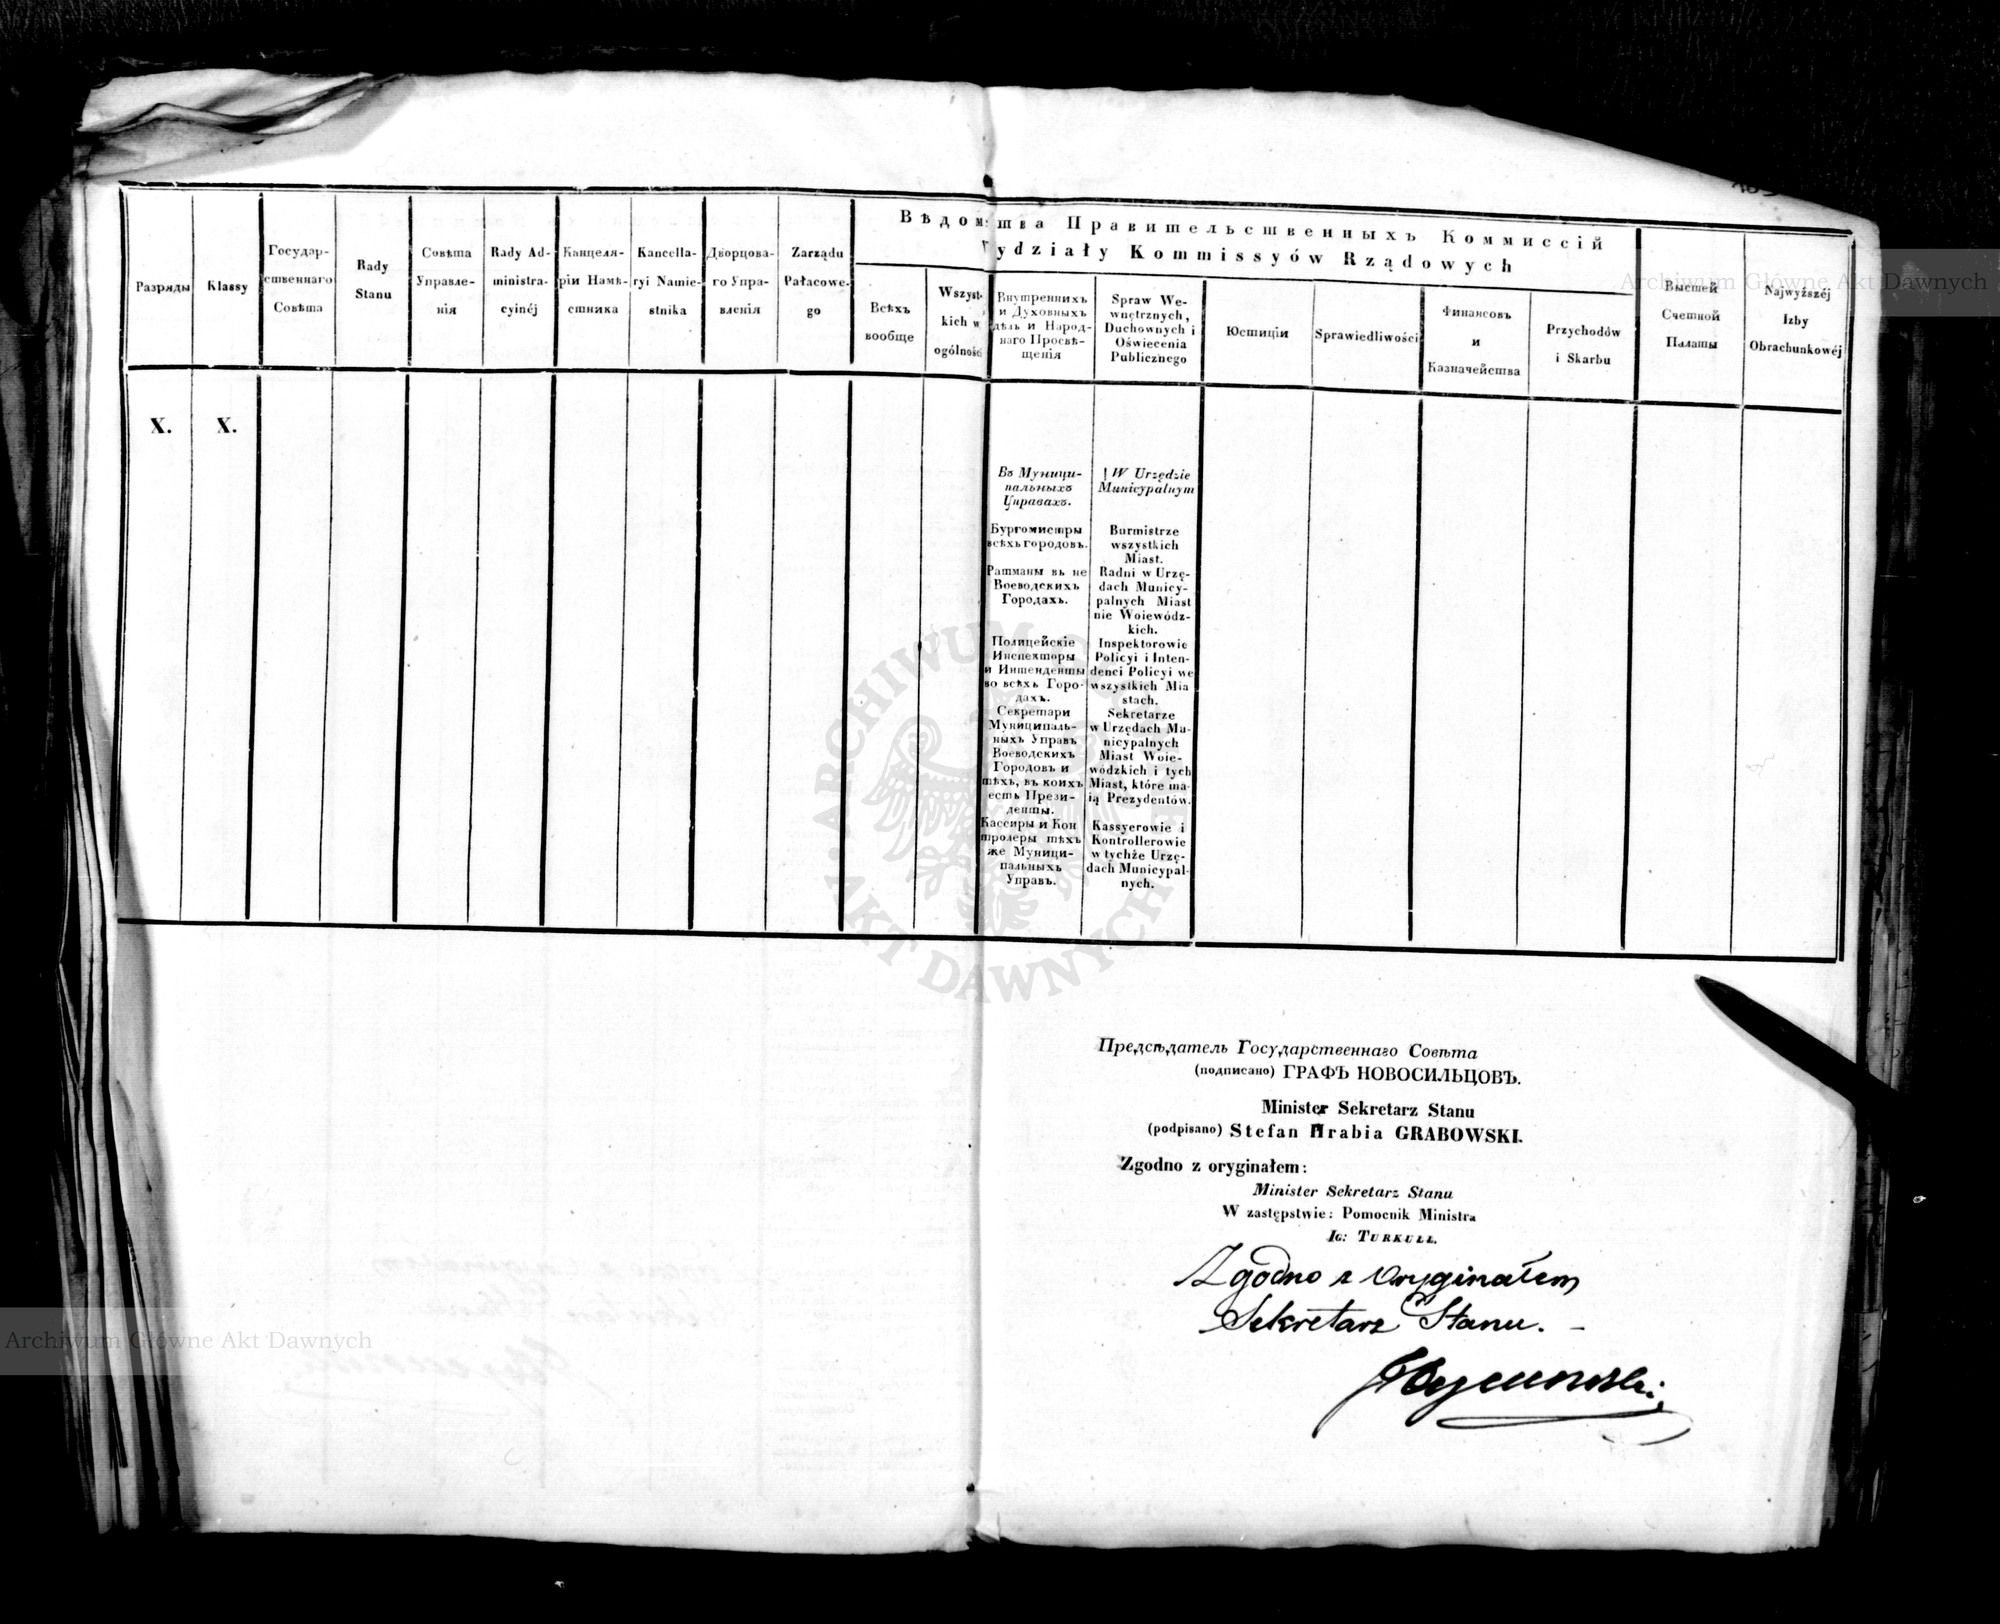 Вѣдомства Правительственныхъ Коммиссій
Wydziały Kommissyów Rządowych
Разряды
Klassy
Государ-
ственнаго
Совѣта
Rady
Stanu
Совѣта
Управле-
нія
Rady Ad-
ministra-
cyinéj
Канцеля-
ріи Намѣ-
стника
Kancella-
ryi Namie-
stnika
Дворцова-
го Упра-
вленія
Zarządu
Pałacowe-
go
Всѣхъ
вообще
Wszyst-
kich w
ogólności
Внутреннихъ
и Духовныхъ
дѣлъ и Народ-
наго Просвѣ-
щенія
Spraw We-
wnętrznych,
Duchownych i
Oświecenia
Publicznego
Юстиціи
Sprawiedliwości
Финансовъ
и
Казначейства
Przychodów
i Skarbu
Высшей
Счетной
Палаты
Najwyższéj
Izby
Obrachunkowéj
X.
X.
Въ Муници-
пальныхъ
Управахъ.
Бургомистры
всѣхъ городовъ.
Ратманы въ не
Воеводскихъ
Городахъ.
Полицейскіе
Инспекторы
и Интенденты
во всѣхъ Горо-
дахъ.
Секретари
Муниципаль-
ныхъ Управъ
Воеводскихъ
Городовъ и
тѣхъ, въ коихъ
есть Прези-
денты.
Кассиры и Кон
тролеры тѣхъ
же Муници-
пальныхъ
Управъ.
W Urzędzie
Municypalnym
Burmistrze
wszystkich
Miast.
Radni w Urzę-
dach Municy-
palnych Miast
nie Woiewódz-
kich.
Inspektorowie
Policyi i Inten-
denci Policyi we
wszystkich Mia
stach.
Sekretarze
w Urzędach Mu-
nicypalnych
Miast Woie-
wódzkich i tych
Miast, które ma-
ią Prezydentów.
Kassyerowie i
Kontrollerowie
w tychże Urzę-
dach Municypal-
nych.
Предсѣдатель Государственнаго Совѣта
(подписано) ГРАФЪ НОВОСИЛЬЦОВЪ.
Minister Sekretarz Stanu
(podpisano) Stefan Hrabia GRABOWSKI.
Zgodno z oryginałem:
Minister Sekretarz Stanu
W zastępstwie: Pomocnik Ministra
IG: TURKULL.
Zgodno z Oryginałem
Sekretarz Stanu. –
Archiwum Główne Akt Dawnych
Archiwum Główne Akt Dawnych
ARCHIWUM GŁÓWNE AKT DAWNYCH